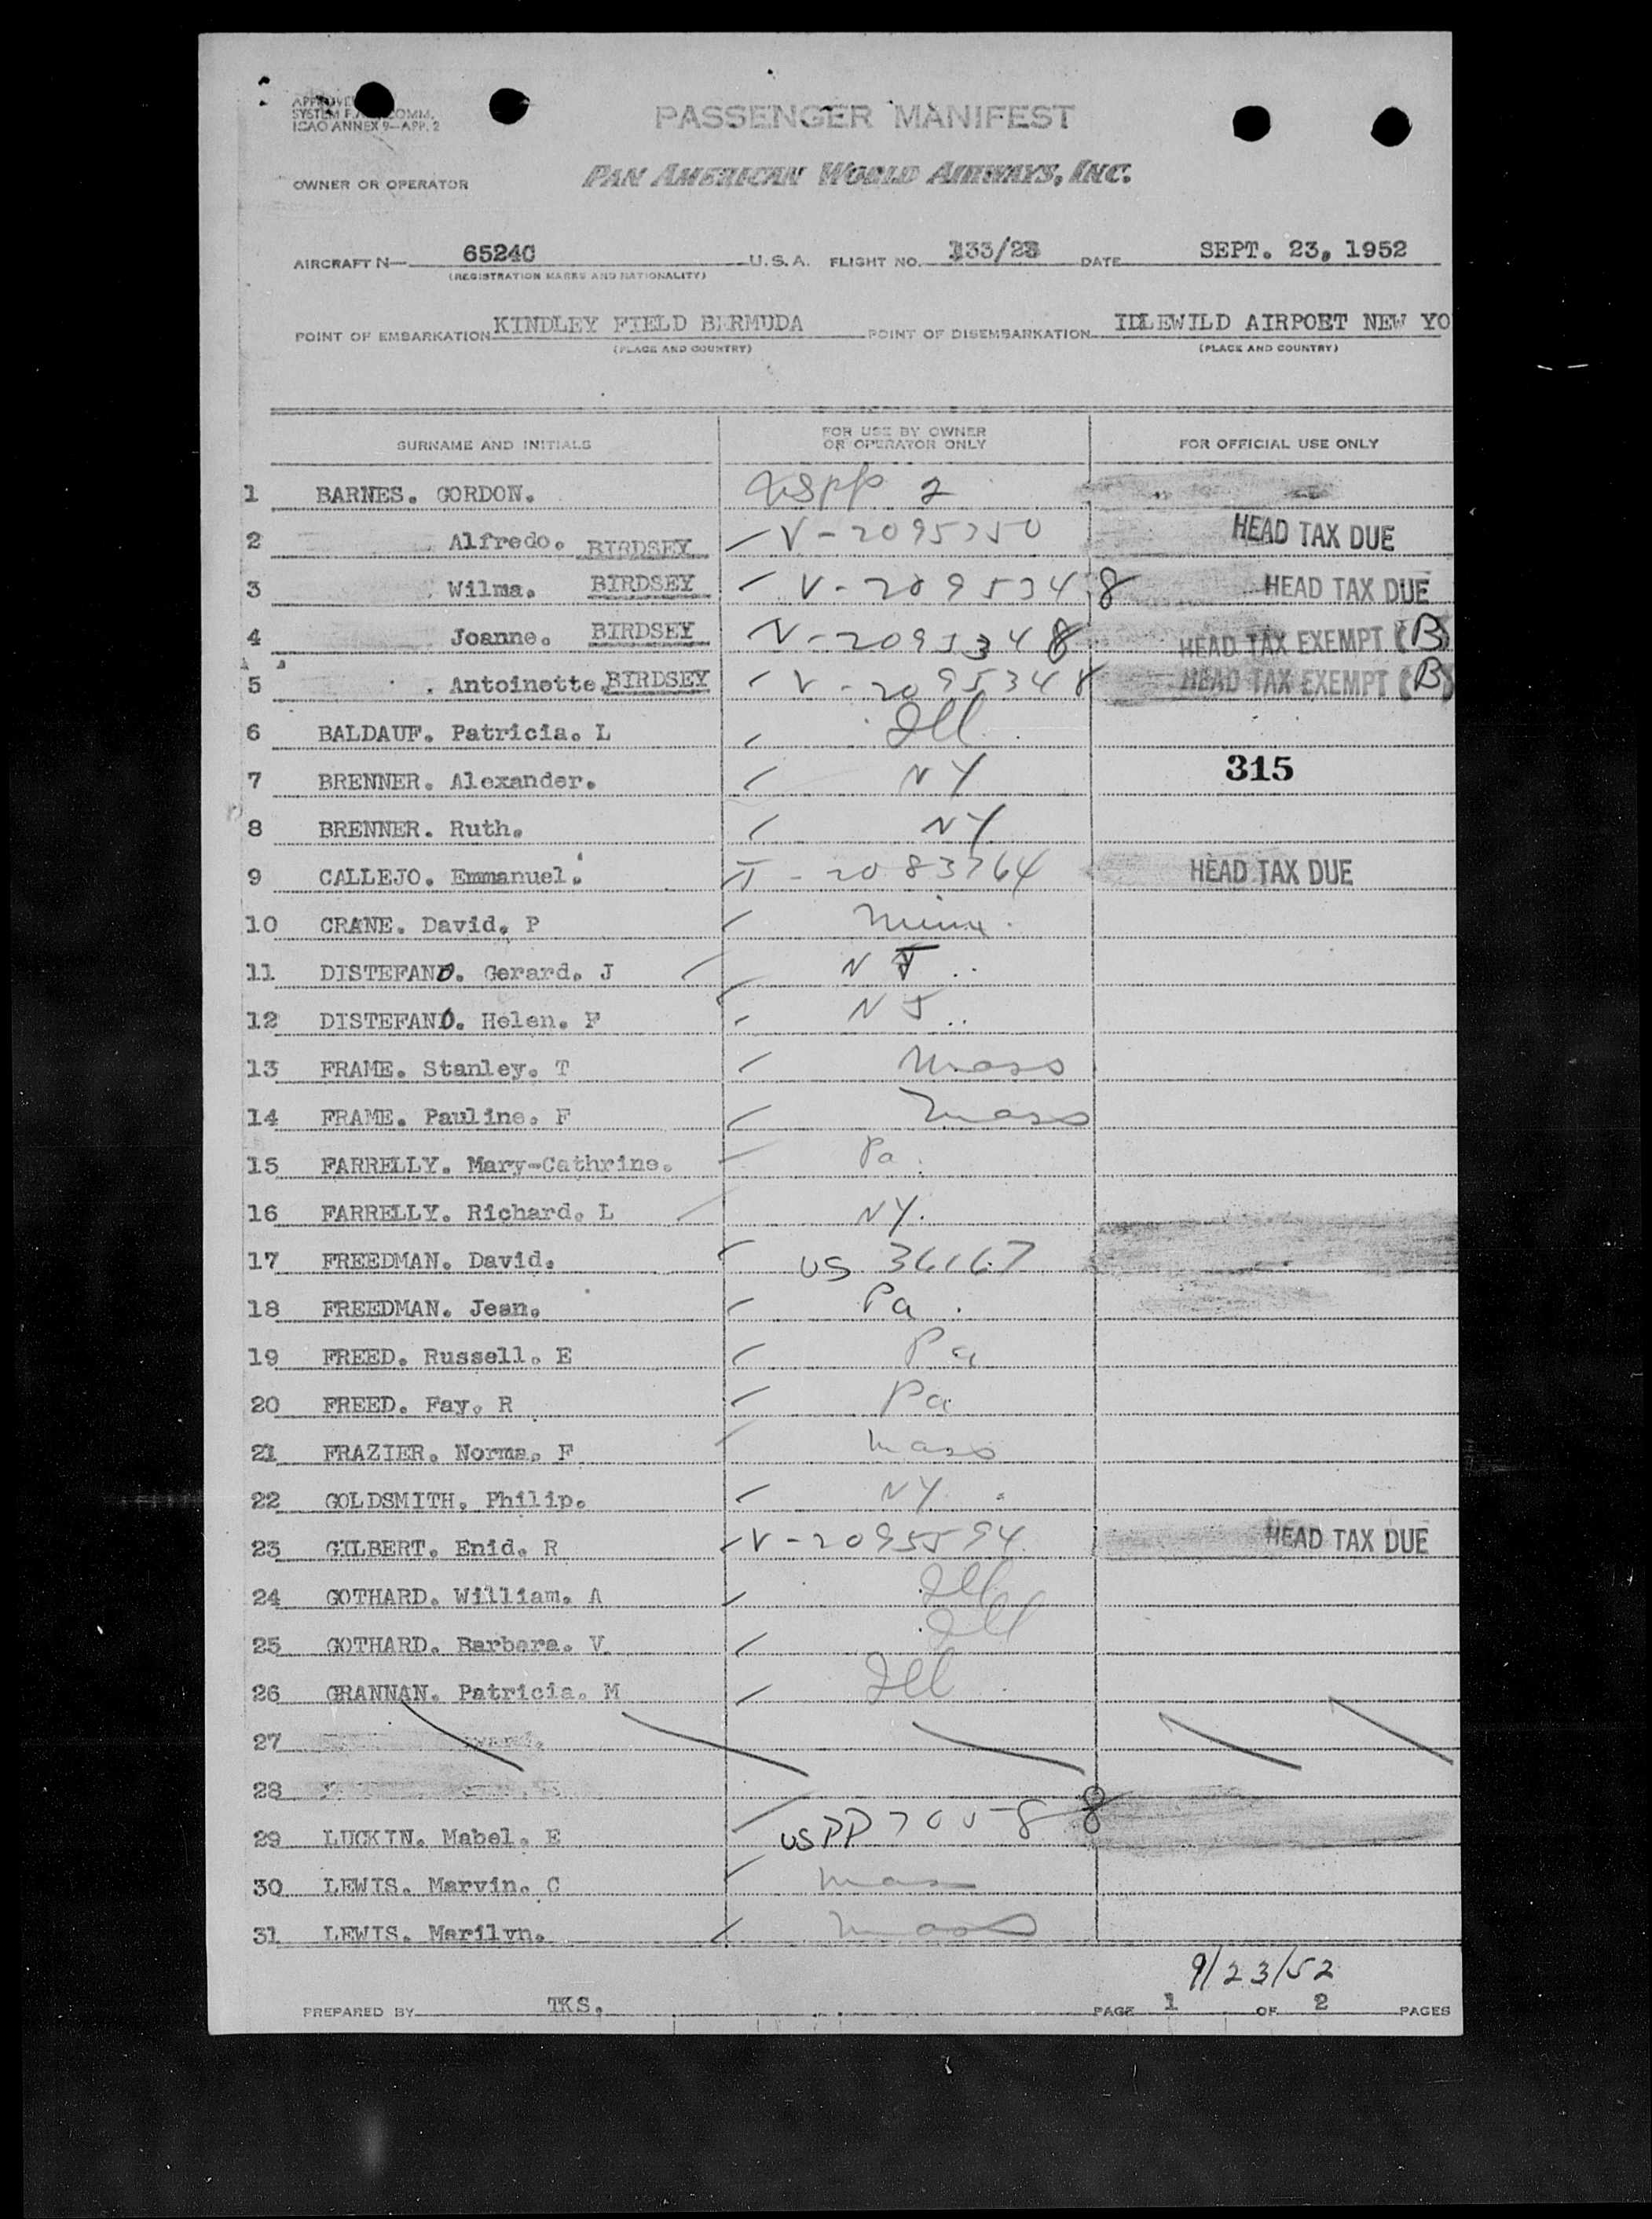 PASSENGER MANIFEST
SYSTEM F.A.L. COMM.
ICAO ANNEX 9-APP. 2
OWNER OR OPERATOR PAN AMERICAN WORLD AIRWAYS, INC.
AIRCRAFT N- 65240 U.S.A. FLIGHT NO. 133/23 DATE SEPT. 23, 1952
(REGISTRATION MARKS AND NATIONALITY)
POINT OF EMBARKATION KINDLEY FIELD BERMUDA POINT OF DISEMBARKATION IDLEWILD AIRPORT NEW YO
(PLACE AND COUNTRY) (PLACE AND COUNTRY)
SURNAME AND INITIALS FOR USE BY OWNER OR OPERATOR ONLY FOR OFFICIAL USE ONLY
1 BARNES. GORDON. USPP 2
2 Alfredo. BIRDSEY V-2095350 HEAD TAX DUE
3 Wilma. BIRDSEY V-2095348 HEAD TAX DUE
4 Joanne. BIRDSEY V-2095348 HEAD TAX EXEMPT (B)
5 Antoinette. BIRDSEY V-2095348 HEAD TAX EXEMPT (B)
6 BALDAUF. Patricia. L Ill
7 BRENNER. Alexander. NY 315
8 BRENNER. Ruth. NY
9 CALLEJO. Emmanuel. T-2083764 HEAD TAX DUE
10 CRANE. David. P Minn.
11 DISTEFANO. Gerard. J NJ
12 DISTEFANO. Helen. F NJ
13 FRAME. Stanley. T Mass
14 FRAME. Pauline. F Mass
15 FARRELLY. Mary-Cathrine. Pa
16 FARRELLY. Richard. L NY.
17 FREEDMAN. David. US 36167
18 FREEDMAN. Jean. Pa.
19 FREED. Russell. E Pa
20 FREED. Fay. R Pa
21 FRAZIER. Norma. F Mass
22 GOLDSMITH. Philip. NY
23 GILBERT. Enid. R V-2095594 HEAD TAX DUE
24 GOTHARD. William. A Ill
25 GOTHARD. Barbara. V. Ill
26 GRANNAN. Patricia. M Ill
27
28
29 LUCKIN. Mabel. E USPP 70058 8
30 LEWIS. Marvin. C Mass
31 LEWIS. Marilyn. Mass
9/23/52
PREPARED BY TKS. PAGE 1 OF 2 PAGES